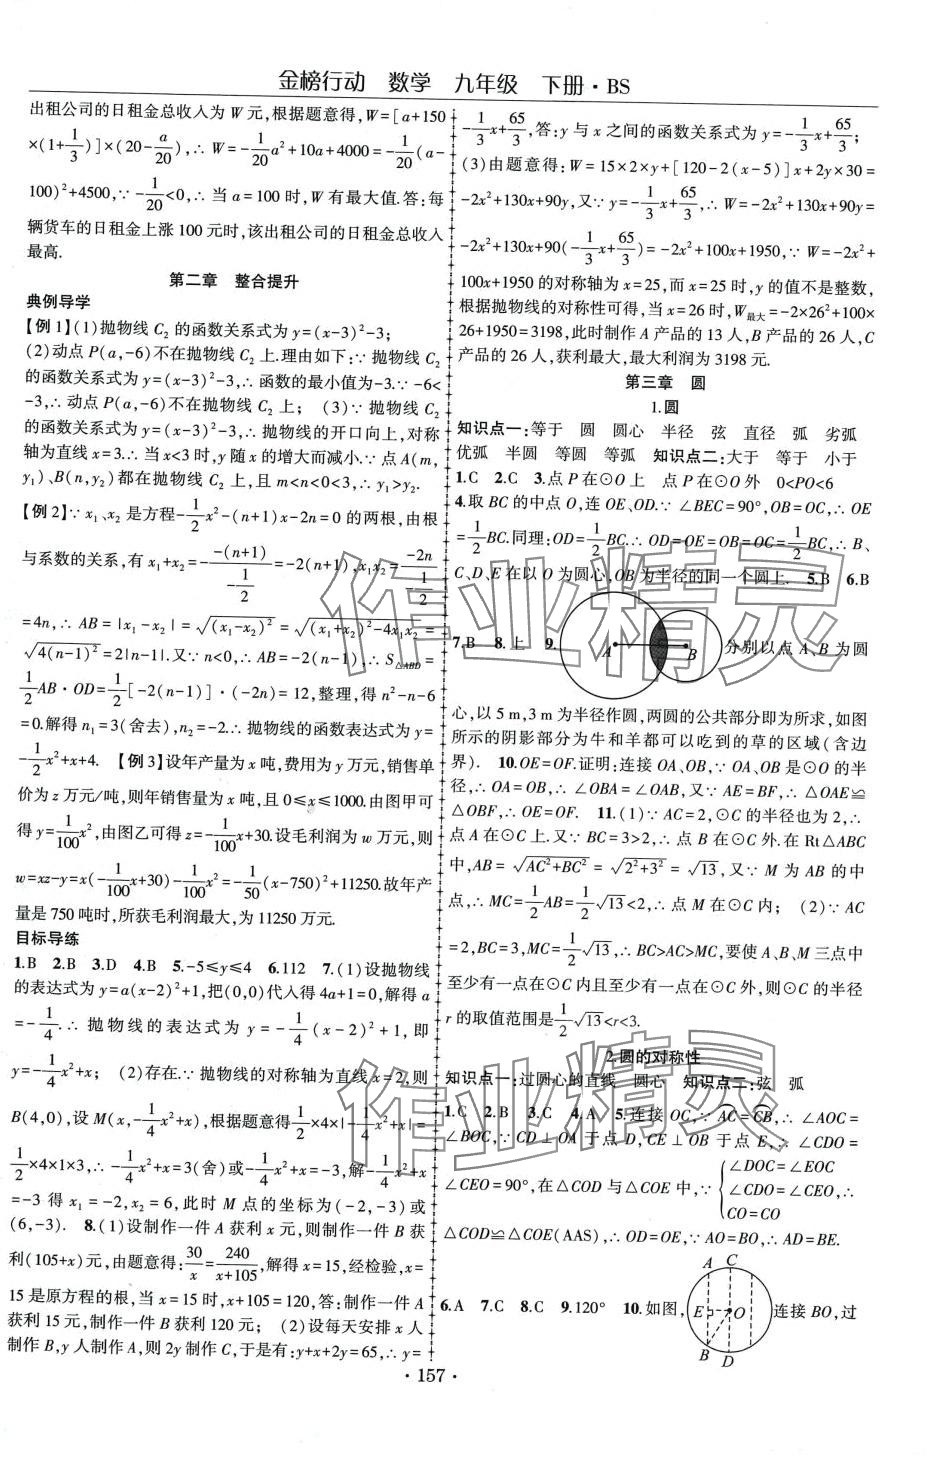 金榜行动 数学 九年级 下册·BS
出租公司的日租金总收入为 W 元,根据题意得,W=[a+150
×(1+1/3)]×(20-a/20),∴W=-1/20a²+10a+4000=-1/20(a-
100)²+4500,∵-1/20<0,∴当 a=100 时,W 有最大值.答:每
辆货车的日租金上涨 100 元时,该出租公司的日租金总收入
最高.
第二章 整合提升
典例导学
【例 1】(1)抛物线 C₂ 的函数关系式为 y=(x-3)²-3;
(2)动点 P(a,-6)不在抛物线 C₂ 上.理由如下:∵抛物线 C₂
的函数关系式为 y=(x-3)²-3,∴函数的最小值为-3.∵-6<
-3,∴动点 P(a,-6)不在抛物线 C₂ 上; (3)∵抛物线 C₂
的函数关系式为 y=(x-3)²-3,∴抛物线的开口向上,对称
轴为直线 x=3,∴当 x<3 时,y 随 x 的增大而减小.∵点 A(m,
y₁)、B(n,y₂)都在抛物线 C₂ 上,且 m<n<0<3,∴y₁>y₂.
【例 2】∵x₁、x₂ 是方程-1/2x²-(n+1)x-2n=0 的两根,由根
与系数的关系,有 x₁+x₂=-(-(n+1))/(-1/2)=-2(n+1),x₁x₂=(-2n)/(-1/2)
=4n,∴AB=|x₁-x₂|=√(x₁-x₂)²=√(x₁+x₂)²-4x₁x₂=
√4(n-1)²=2|n-1|.又∵n<0,∴AB=-2(n-1),∴S△ABD=
1/2AB·OD=1/2[-2(n-1)]·(-2n)=12,整理,得 n²-n-6
=0.解得 n₁=3(舍去),n₂=-2.∴抛物线的函数表达式为 y=
-1/2x²+x+4. 【例 3】设年产量为 x 吨,费用为 y 万元,销售单
价为 z 万元/吨,则年销售量为 x 吨,且 0≤x≤1000.由图甲可
得 y=1/100x²,由图乙可得 z=-1/100x+30.设毛利润为 w 万元,则
w=xz-y=x(-1/100x+30)-1/100x²=-1/50(x-750)²+11250.故年产
量是 750 吨时,所获毛利润最大,为 11250 万元.
目标导练
1.B 2.B 3.D 4.B 5.-5≤y≤4 6.112 7.(1)设抛物线
的表达式为 y=a(x-2)²+1,把(0,0)代入得 4a+1=0,解得 a
=-1/4.∴抛物线的表达式为 y=-1/4(x-2)²+1,即
y=-1/4x²+x; (2)存在.∵抛物线的对称轴为直线 x=2,则
B(4,0),设 M(x,-1/4x²+x),根据题意得1/2×4×|-1/4x²+x|=
1/2×4×1×3,∴-1/4x²+x=3(舍)或-1/4x²+x=-3,解-1/4x²+x
=-3 得 x₁=-2,x₂=6,此时 M 点的坐标为(-2,-3)或
(6,-3). 8.(1)设制作一件 A 获利 x 元,则制作一件 B 获
利(105+x)元,由题意得:30/x=240/(x+105),解得 x=15,经检验,x=
15 是原方程的根,当 x=15 时,x+105=120,答:制作一件 A
获利 15 元,制作一件 B 获利 120 元; (2)设每天安排 x 人
制作 B,y 人制作 A,则 2y 制作 C,于是有:y+x+2y=65,∴y=
-1/3x+65/3,答:y 与 x 之间的函数关系式为 y=-1/3x+65/3;
(3)由题意得:W=15×2×y+[120-2(x-5)]x+2y×30=
-2x²+130x+90y,又∵y=-1/3x+65/3,∴W=-2x²+130x+90y=
-2x²+130x+90(-1/3x+65/3)=-2x²+100x+1950,∵W=-2x²+
100x+1950 的对称轴为 x=25,而 x=25 时,y 的值不是整数,
根据抛物线的对称性可得,当 x=26 时,W最大=-2×26²+100×
26+1950=3198,此时制作 A 产品的 13 人,B 产品的 26 人,C
产品的 26 人,获利最大,最大利润为 3198 元.
第三章 圆
1.圆
知识点一:等于 圆 圆心 半径 弦 直径 弧 劣弧
优弧 半圆 等圆 等弧 知识点二:大于 等于 小于
1.C 2.C 3.点 P 在⊙O 上 点 P 在⊙O 外 0<PO<6
4.取 BC 的中点 O,连 OE、OD.∵∠BEC=90°,OB=OC,∴OE
=1/2BC.同理:OD=1/2BC.∴OD=OE=OB=OC=1/2BC,∴B、
C、D、E 在以 O 为圆心,OB 为半径的同一个圆上. 5.B 6.B
7.B 8.上 9. A B 分别以点 A、B 为圆
心,以 5 m,3 m 为半径作圆,两圆的公共部分即为所求,如图
所示的阴影部分为牛和羊都可以吃到的草的区域(含边
界). 10.OE=OF.证明:连接 OA、OB,∵OA、OB 是⊙O 的半
径,∴OA=OB,∴∠OBA=∠OAB,又∵AE=BF,∴△OAE≌
△OBF,∴OE=OF. 11.(1)∵AC=2,⊙C 的半径也为 2,∴
点 A 在⊙C 上.又∵BC=3>2,∴点 B 在⊙C 外.在 Rt△ABC
中,AB=√AC²+BC²=√2²+3²=√13,又∵M 为 AB 的中
点,∴MC=1/2AB=1/2√13<2,∴点 M 在⊙C 内; (2)∵AC
=2,BC=3,MC=1/2√13,∴BC>AC>MC,要使 A、B、M 三点中
至少有一点在⊙C 内且至少有一点在⊙C 外,则⊙C 的半径
r 的取值范围是1/2√13<r<3.
2.圆的对称性
知识点一:过圆心的直线 圆心 知识点二:弦 弧
1.C 2.B 3.C 4.A 5.连接 OC,∵AC=CB,∴∠AOC=
∠BOC,∵CD⊥OA 于点 D,CE⊥OB 于点 E,∴∠CDO=
∠CEO=90°,在△COD 与△COE 中,∵{∠DOC=∠EOC
∠CDO=∠CEO,∴
CO=CO
△COD≌△COE(AAS),∴OD=OE,∵AO=BO,∴AD=BE.
6.A 7.C 8.C 9.120° 10.如图, A C E O B D 连接 BO,过
·157·
作业精灵
作业精灵